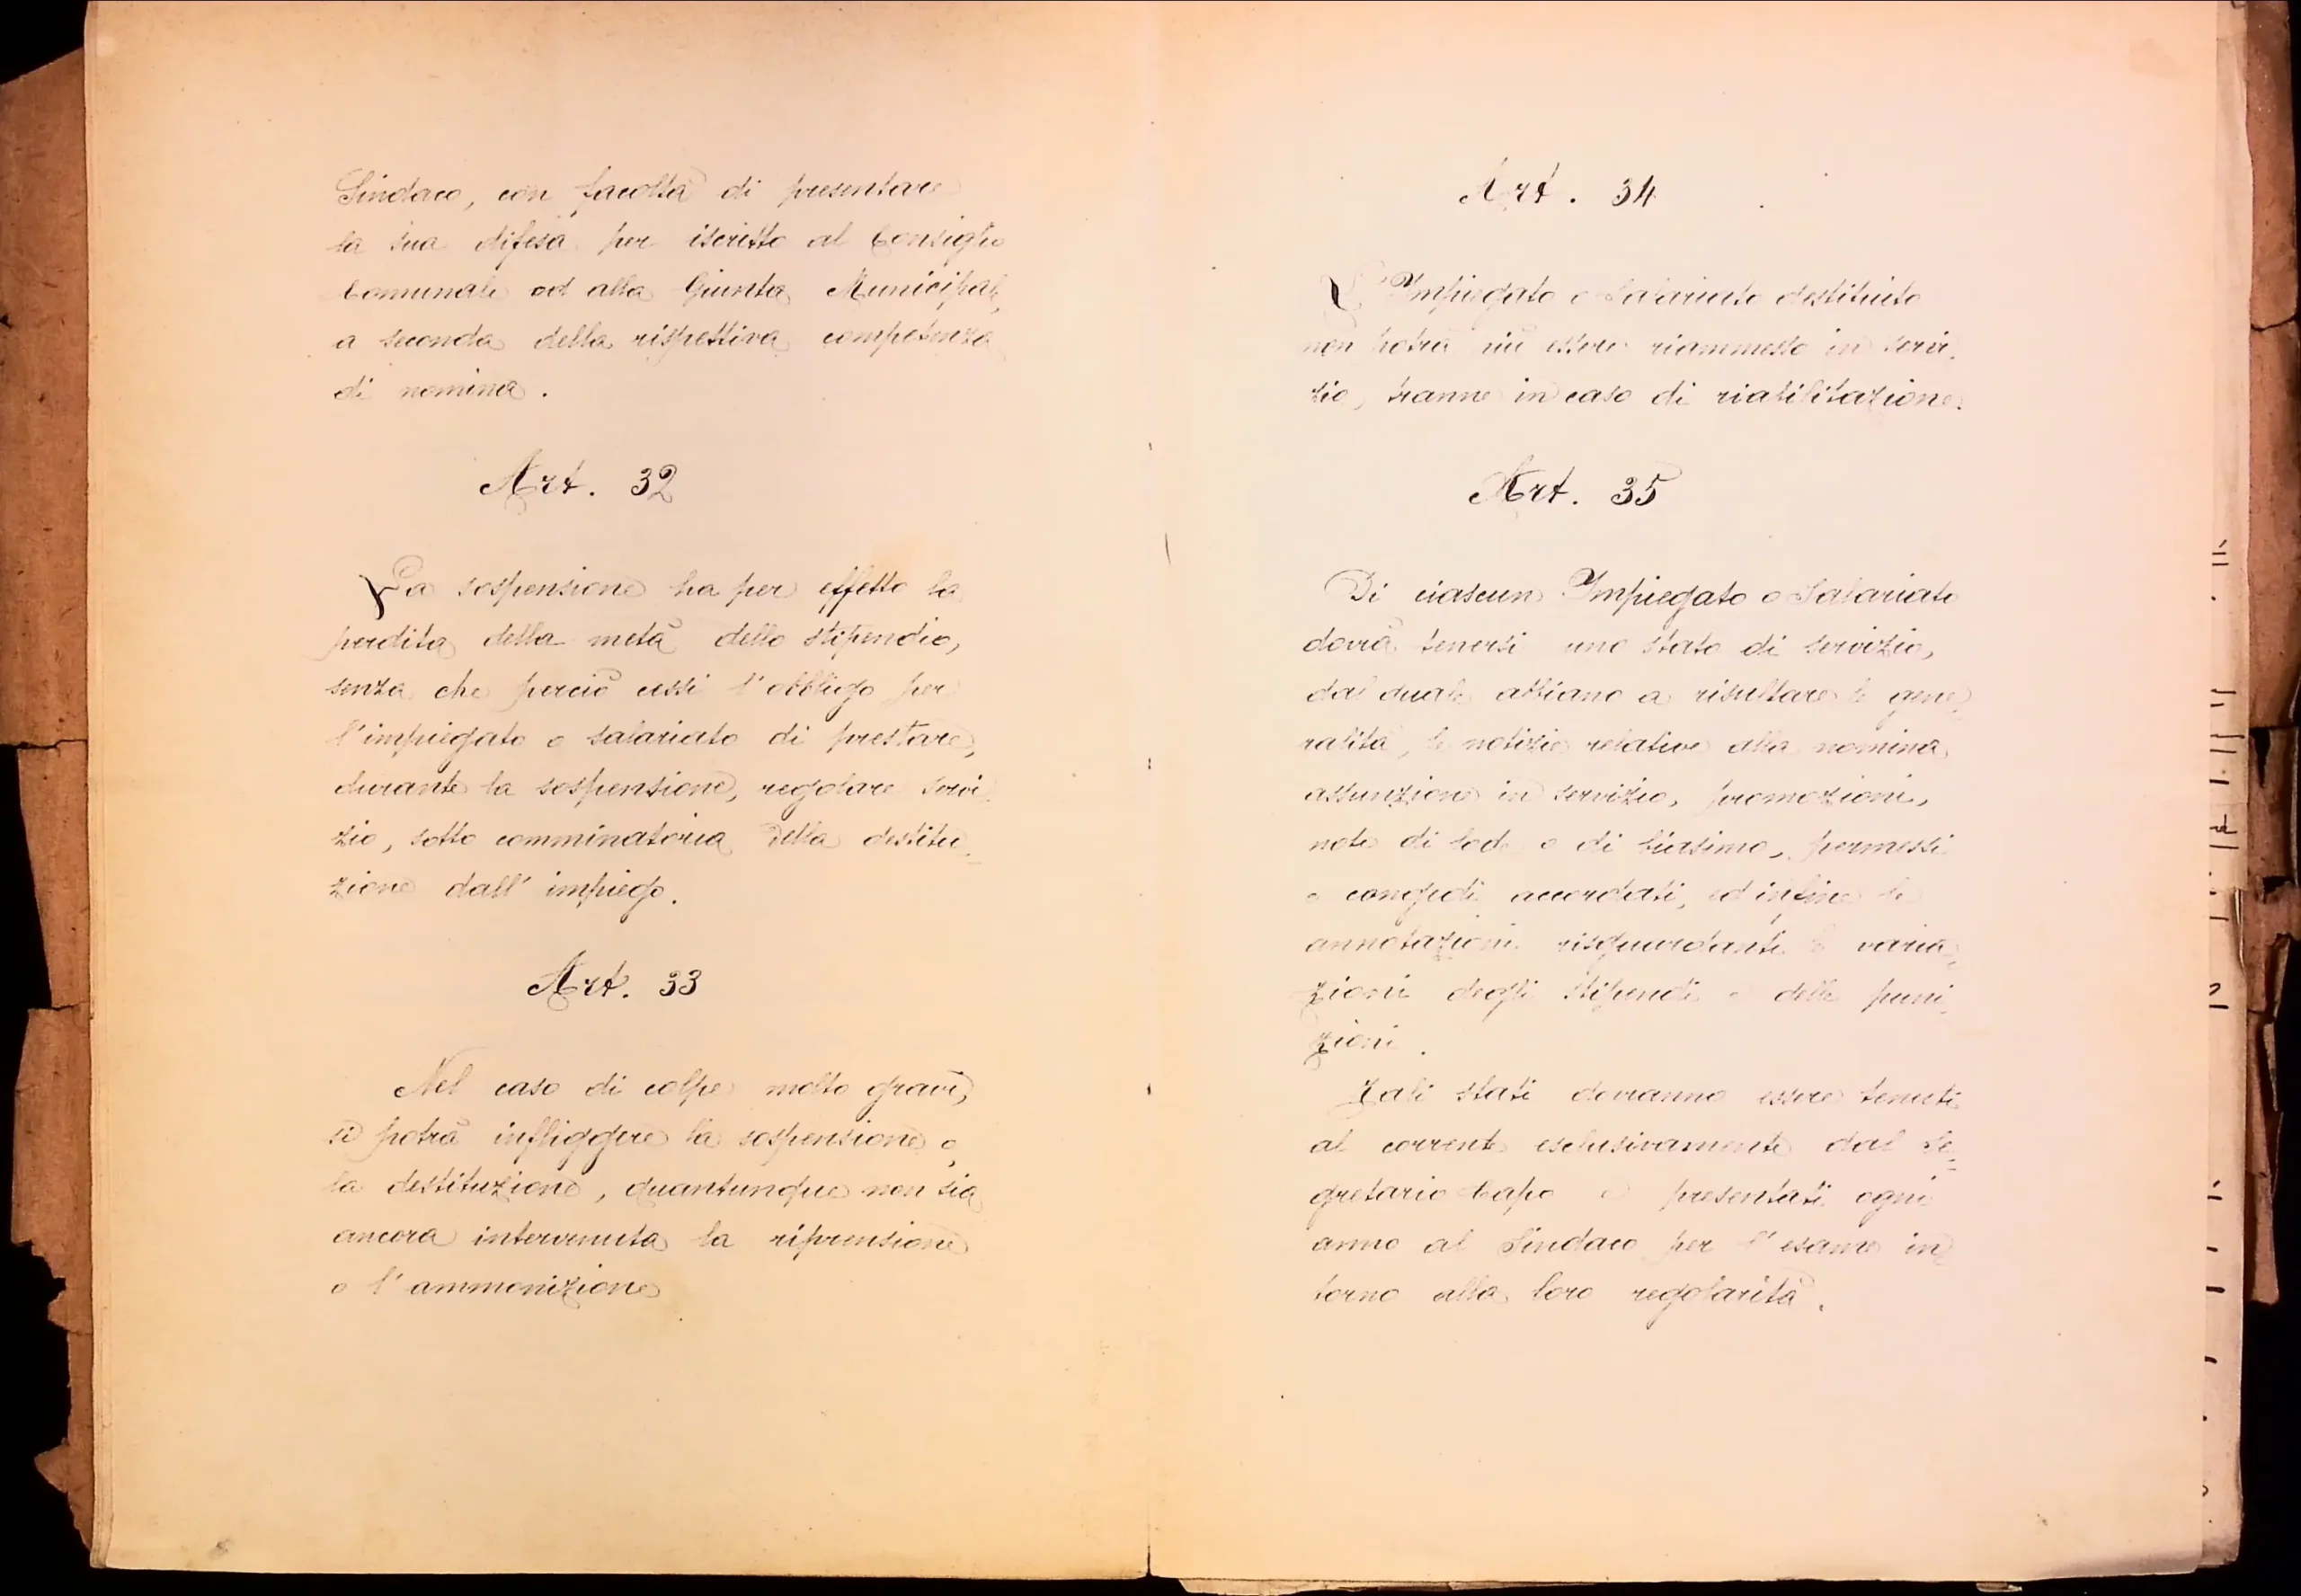 Sindaco, con facoltà di presentare
la sua difesa per iscritto al Consiglio
Comunale od alla Giunta Municipale,
a seconda della rispettiva competenza
di nomina.
Art. 32
La sospensione ha per effetto la
perdita della metà dello stipendio,
senza che perciò cessi l'obbligo per
l'impiegato o salariato di prestare,
durante la sospensione, regolare servi-
zio, sotto comminatoria della destitu-
zione dall'impiego.
Art. 33
Nel caso di colpe molto gravi,
si potrà infliggere la sospensione o
la destituzione, quantunque non sia
ancora intervenuta la riprensione
o l'ammonizione
Art. 34
L'Impiegato o Salariato destituito
non potrà più essere riammesso in servi-
zio, tranne in caso di riabilitazione.
Art. 35
Di ciascun Impiegato o Salariato
dovrà tenersi uno stato di servizio,
dal quale abbiano a risultare le gene-
ralità, le notizie relative alla nomina,
assunzione in servizio, promozioni,
note di lode o di biasimo, permessi
o congedi accordati, ed infine le
annotazioni risguardanti le varia-
zioni degli stipendi e delle puni-
zioni.
Tali stati dovranno essere tenuti
al corrente esclusivamente dal Se-
gretario Capo e presentati ogni
anno al Sindaco per l'esame in-
torno alla loro regolarità.